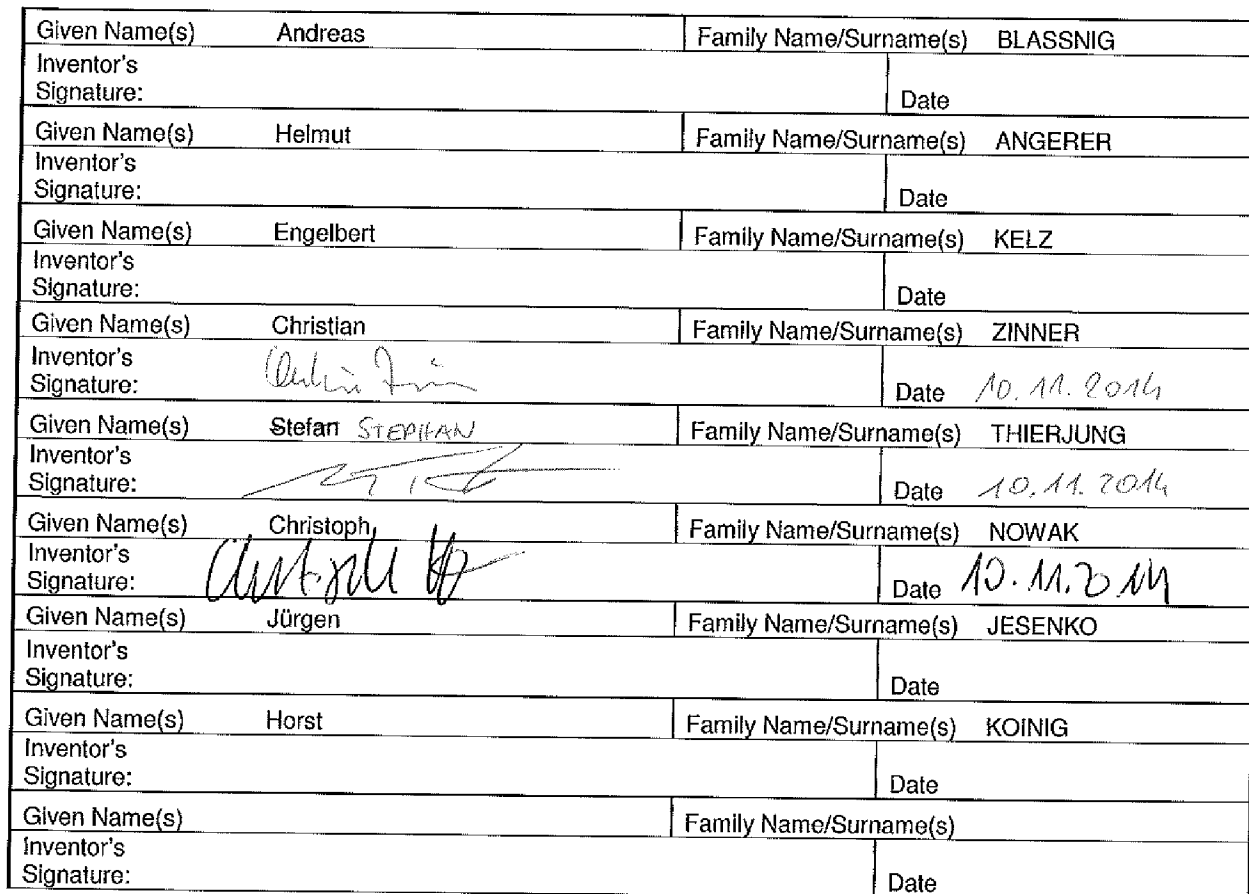 Given Name(s) Andreas Family Name/Surname(s) BLASSNIG
Inventor's
Signature: Date
Given Name(s) Helmut Family Name/Surname(s) ANGERER
Inventor's
Signature: Date
Given Name(s) Engelbert Family Name/Surname(s) KELZ
Inventor's
Signature: Date
Given Name(s) Christian Family Name/Surname(s) ZINNER
Inventor's
Signature: Date 10.11.2014
Given Name(s) Stefan STEPHAN Family Name/Surname(s) THIERJUNG
Inventor's
Signature: Date 10.11.2014
Given Name(s) Christoph Family Name/Surname(s) NOWAK
Inventor's
Signature: Date 10.11.2014
Given Name(s) Jürgen Family Name/Surname(s) JESENKO
Inventor's
Signature: Date
Given Name(s) Horst Family Name/Surname(s) KOINIG
Inventor's
Signature: Date
Given Name(s) Family Name/Surname(s)
Inventor's
Signature: Date